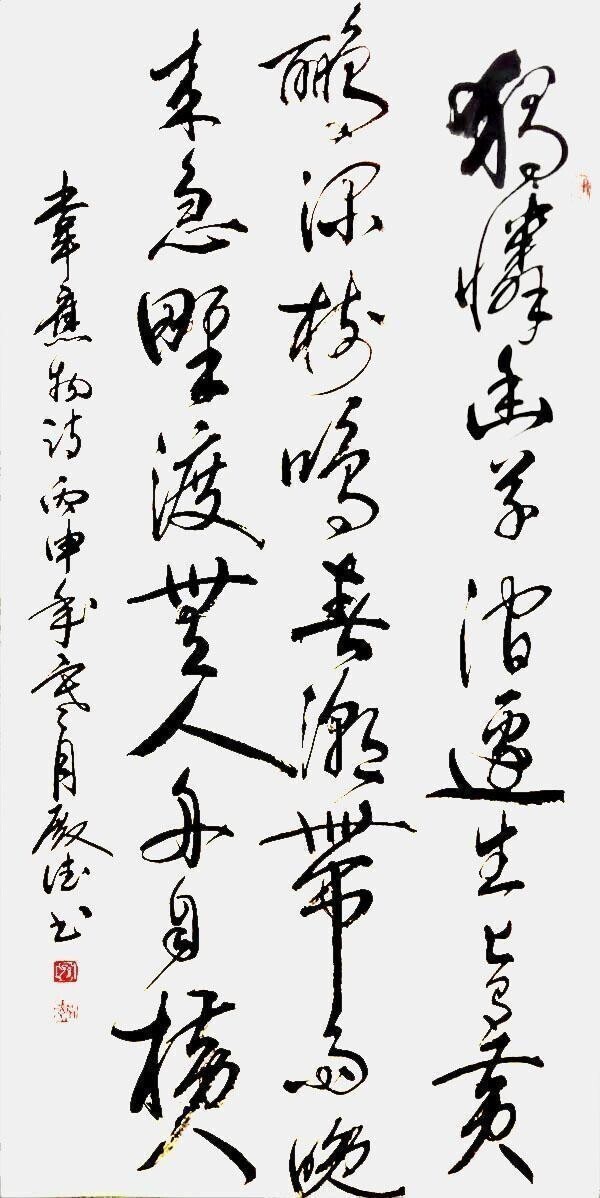 獨憐幽草澗邊生上有黃
鸝深樹鳴春潮帶雨晚
来急野渡無人舟自橫
韋應物詩丙申年月殿书